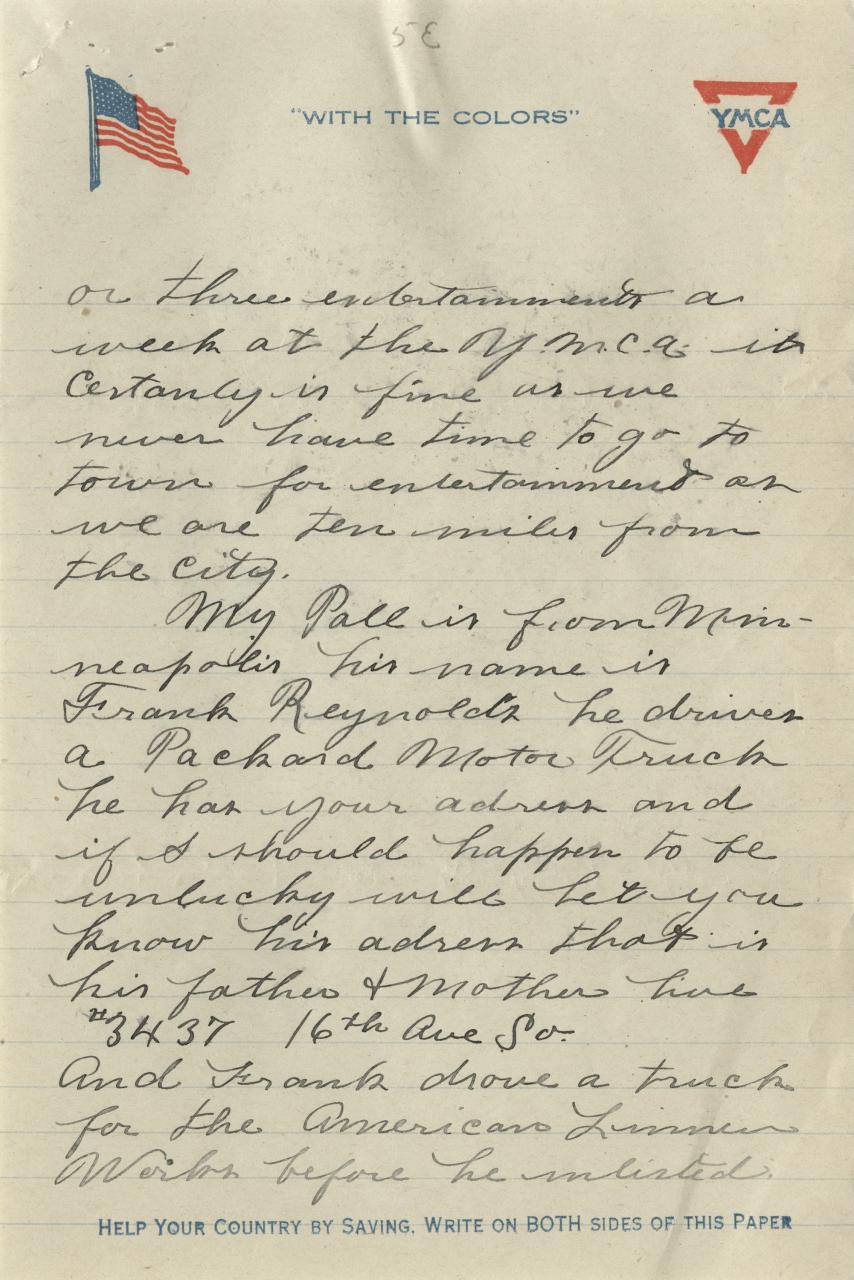 53
"WITH THE COLORS"
YMCA
or three entertainments a
week at the Y.M.C.A. it
Certanly is fine as we
never have time to go to
town for entertainment as
we are ten miles from
the city.
My Pall is from Min-
neapolis his name is
Frank Reynolds he drives
a Packard Motor Truck
he has your adress and
if I should happen to be
unlucky will let you
know his adress that is
his father & Mother live
#3437 16th Ave So.
And Frank drove a truck
for the American Linnen
Works before he inlisted.
HELP YOUR COUNTRY BY SAVING. WRITE ON BOTH SIDES OF THIS PAPER